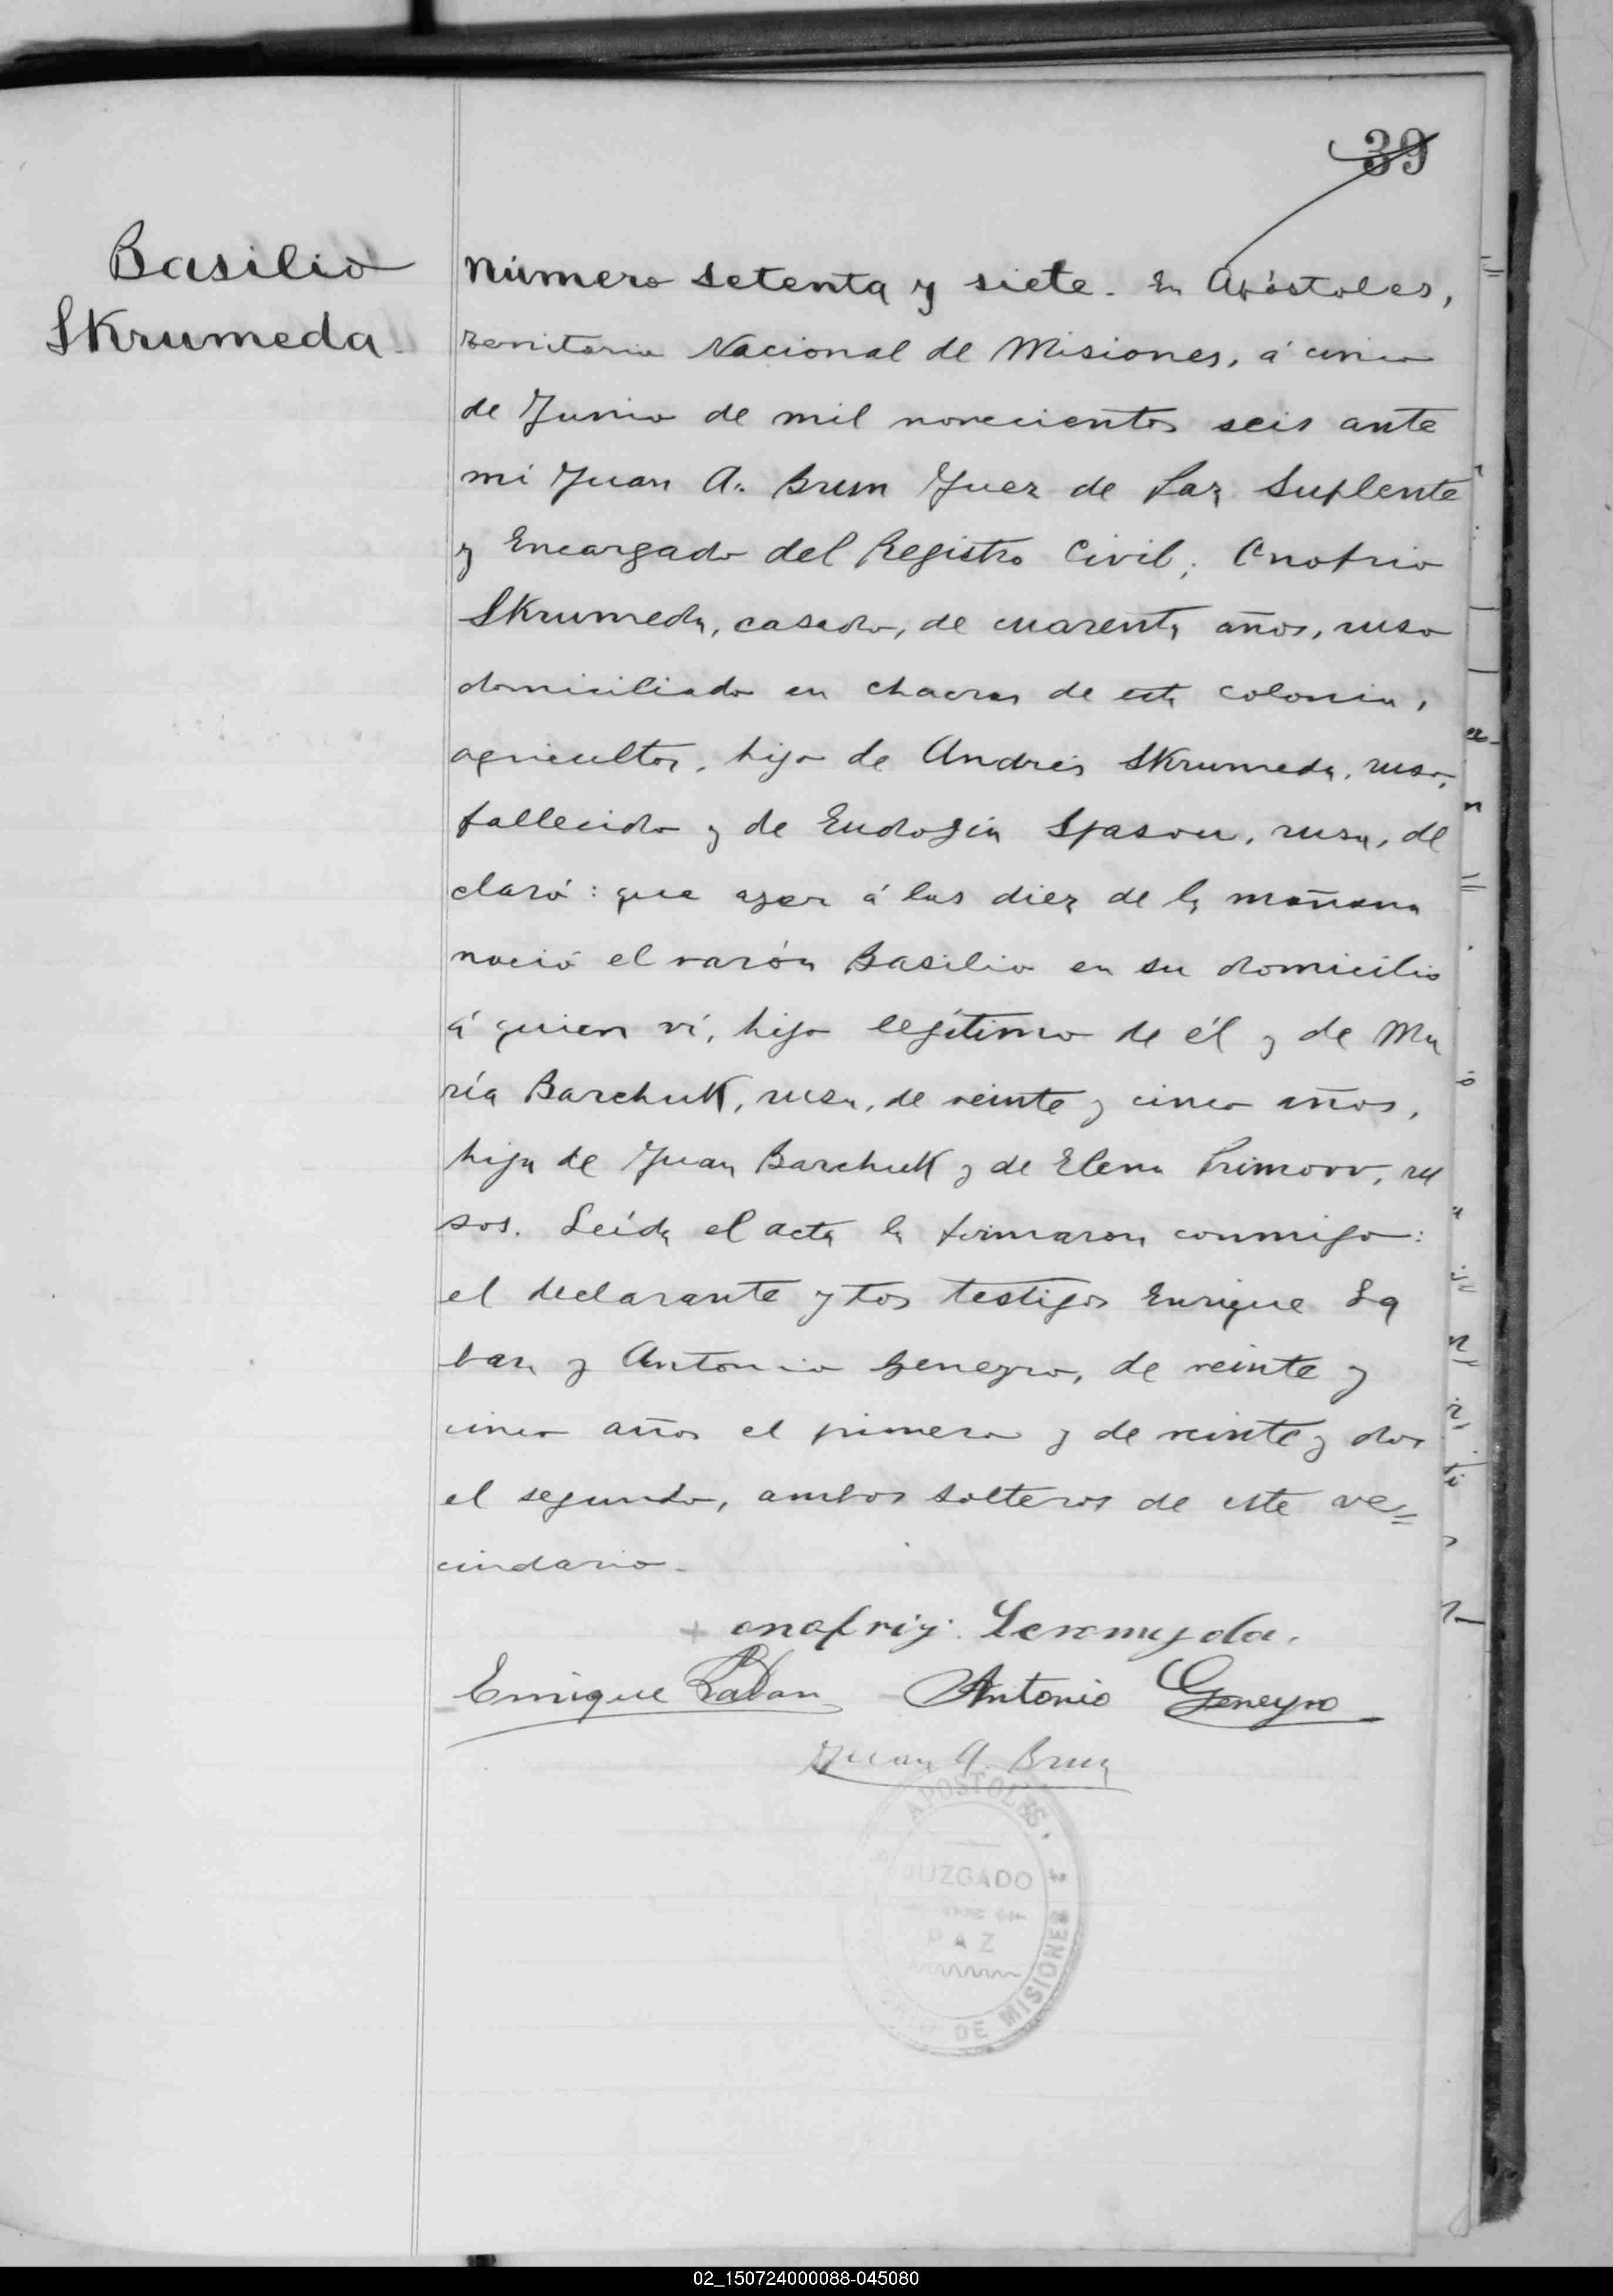 39
Basilio
Skrumeda
Número setenta y siete. En Apóstoles,
Territorio Nacional de Misiones, á cinco
de Junio de mil novecientos seis ante
mi Juan A. Brun Juez de Paz Suplente
y Encargado del Registro Civil; Onofrio
Skrumeda, casado, de cuarenta años, ruso
domiciliado en chacras de esta colonia,
agricultor, hijo de Andrés Skrumeda, ruso,
fallecido y de Eudogia Spasou, rusa, de
claró: que ayer á las diez de la mañana
nació el varón Basilio en su domicilio
á quien ví, hijo legítimo de él y de Ma
ría Barchuk, rusa, de veinte y cinco años,
hija de Juan Barchuk y de Elena Primovv, ru
sos. Leída el acta la firmaron conmigo:
el declarante y los testigos Enrique La
ban y Antonio Geneyro, de veinte y
cinco años el primero y de veinte y dos
el segundo, ambos solteros de este ve=
cindario.
onofrij
Enrique Laban Antonio Geneyro
Juan A. Brun
APOSTOLES
JUZGADO
PAZ
DE MISIONES
02_150724000088-045080